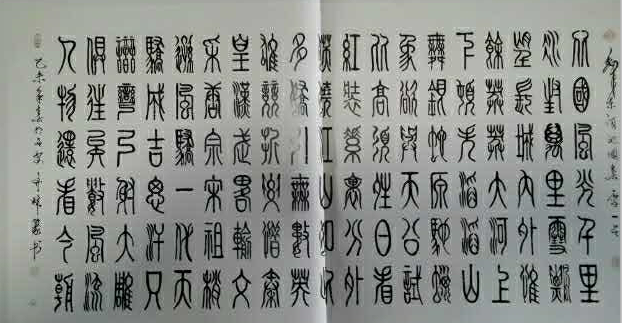 北國風光千里
冰封萬里雪飄
望長城內外惟
餘莽莽大河上
下頓失滔滔山
舞銀蛇原馳蠟
象欲與天公試
比高須晴日看
紅裝素裹分外
妖嬈江山如此
多嬌引無數英
雄競折腰惜秦
皇漢武略輸文
采唐宗宋祖稍
遜風騷一代天
驕成吉思汗只
識彎弓射大雕
俱往矣數風流
人物還看今朝
乙未
書